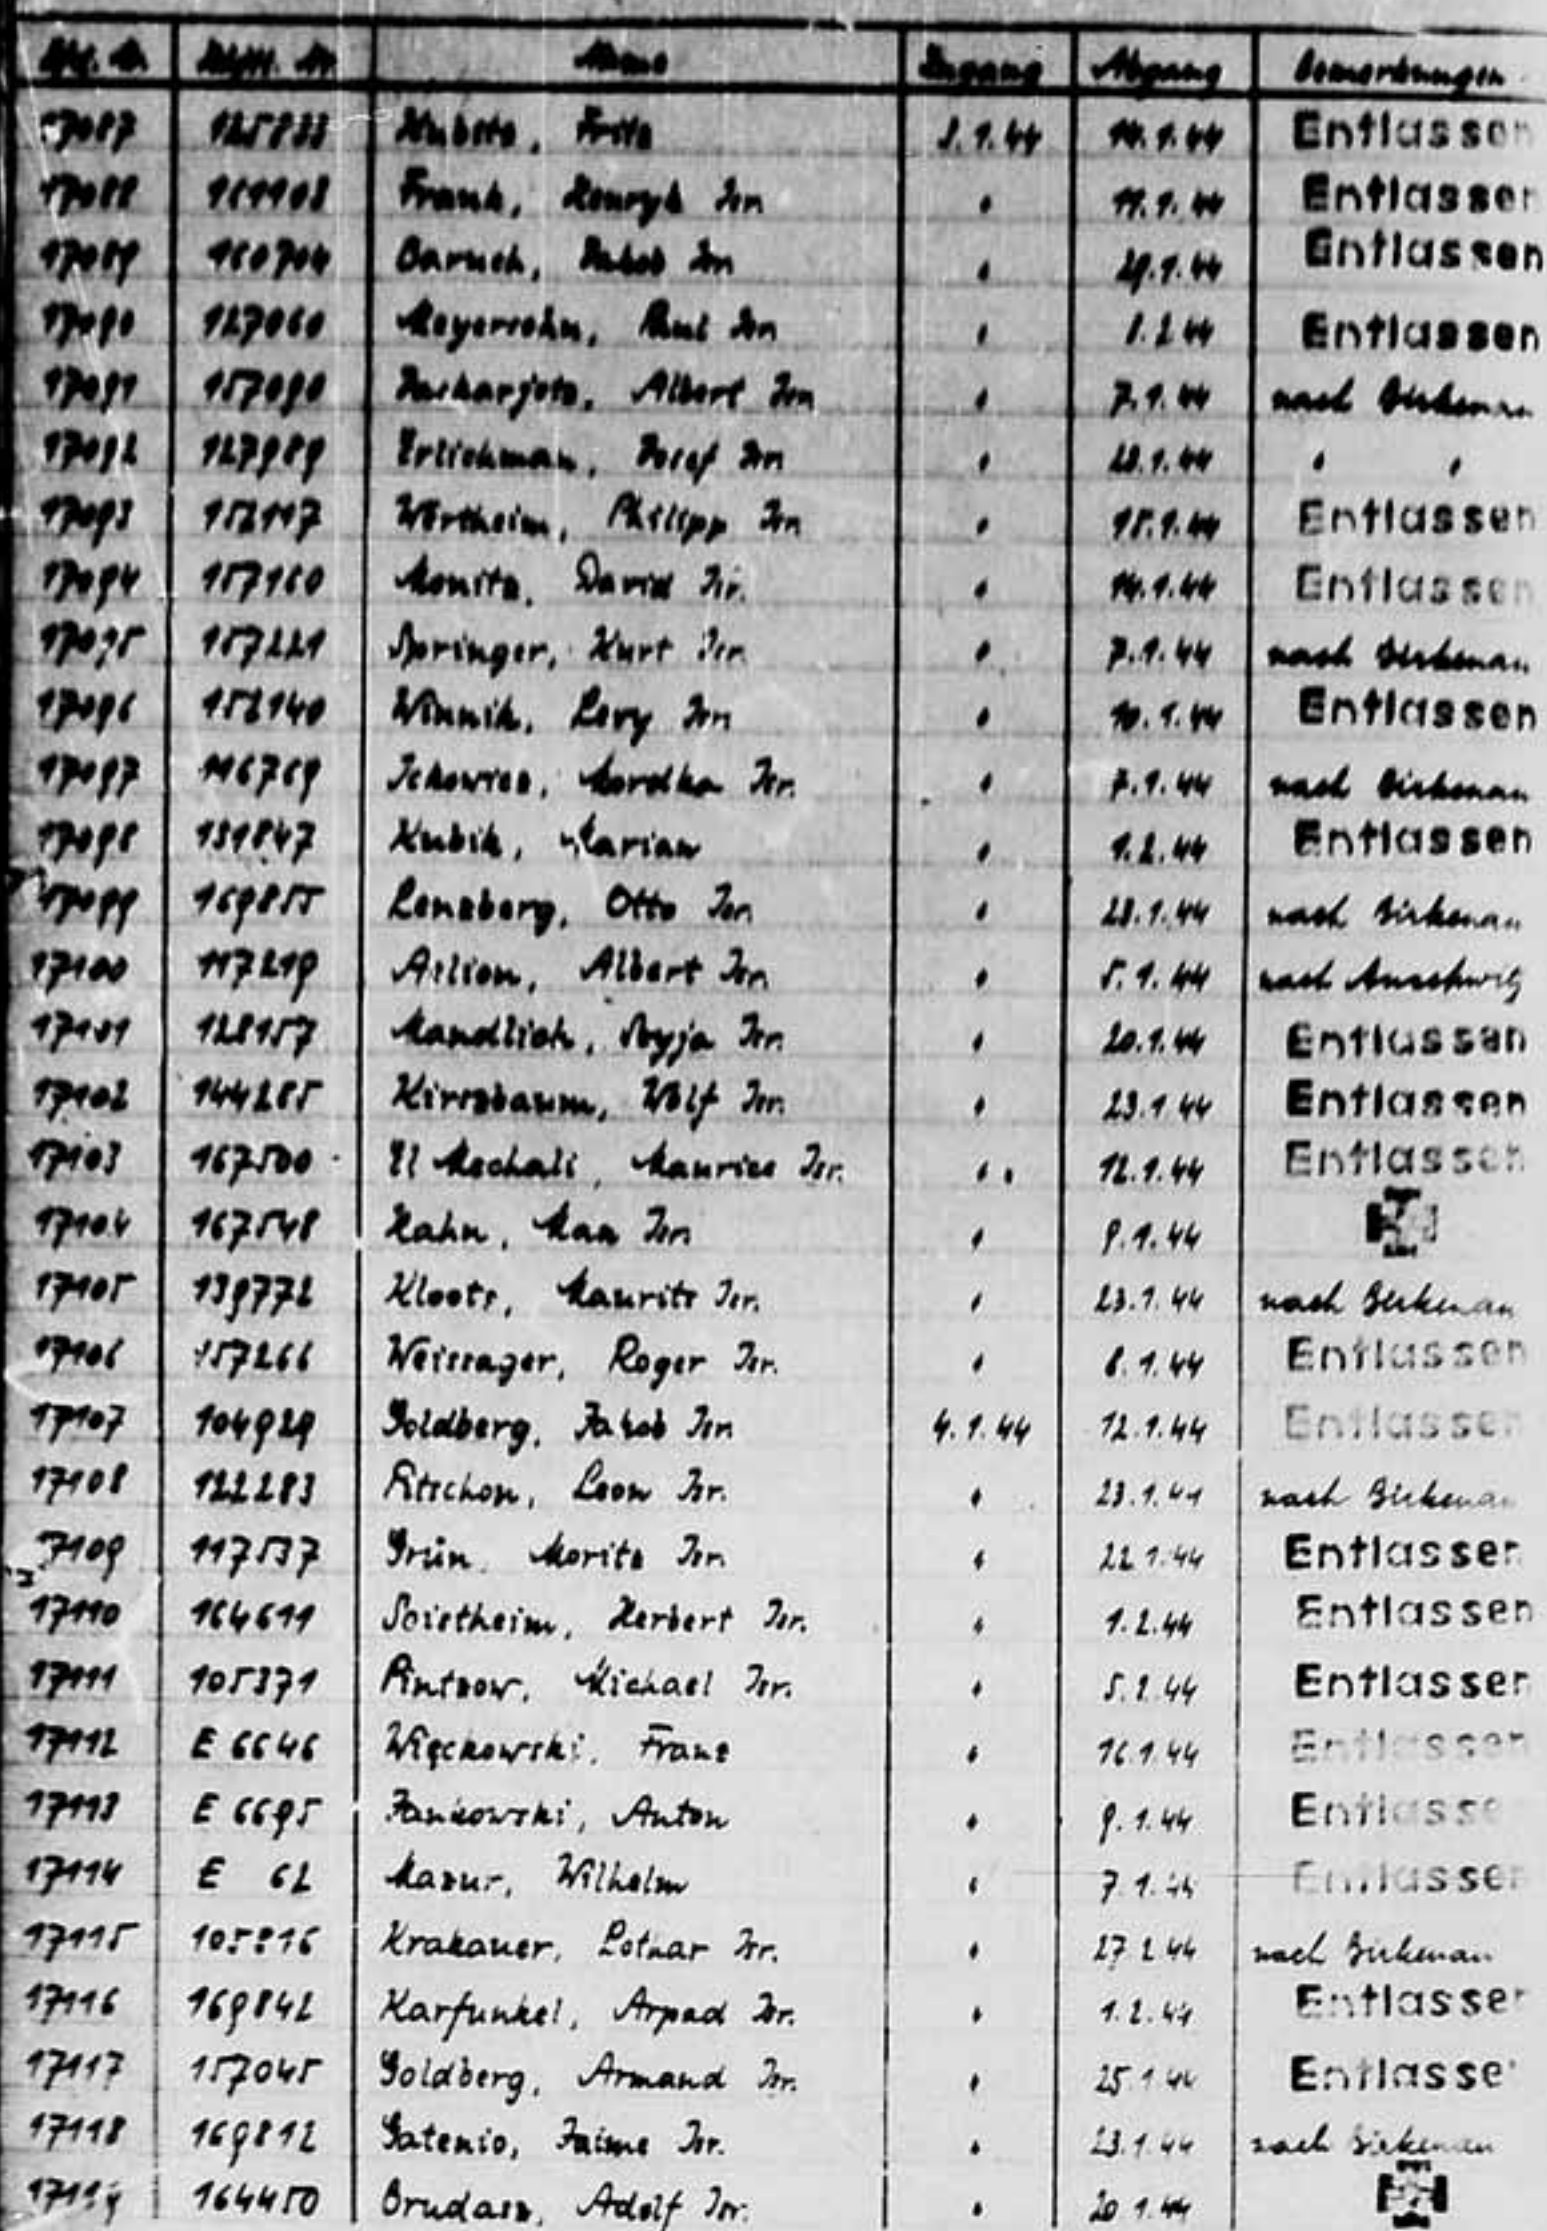 Lfd. Nr. Häftl. Nr. Name Zugang Abgang Bemerkungen
17087 125833 Fritz 3.1.44 14.1.44 Entlassen
17088 161108 Frank, Henryk Isr. " 11.1.44 Entlassen
17089 160704 Baruch, Jakob Isr. " 29.1.44 Entlassen
17090 127060 Meyersohn, Paul Isr. " 1.2.44 Entlassen
17091 157090 Albert Isr. " 7.1.44 nach Birkenau
17092 127989 Erlichman, Josef Isr. " 28.1.44 " "
17093 152117 Wertheim, Philipp Isr. " 15.1.44 Entlassen
17094 157160 Monitz, David Isr. " 14.1.44 Entlassen
17095 157221 Springer, Kurt Isr. " 7.1.44 nach Birkenau
17096 152140 Winnik, Levy Isr. " 10.1.44 Entlassen
17097 116769 Ickowicz, Mordka Isr. " 7.1.44 nach Birkenau
17098 131847 Kubik, Marian " 1.2.44 Entlassen
17099 169855 Lenzberg, Otto Isr. " 28.1.44 nach Birkenau
17100 117219 Aelion, Albert Isr. " 5.1.44 nach Auschwitz
17101 128157 Mandlich, Isr. " 20.1.44 Entlassen
17102 144285 Kirszbaum, Wolf Isr. " 23.1.44 Entlassen
17103 167500 El Mechali, Maurice Isr. " 12.1.44 Entlassen
17104 167548 Kahn, Max Isr. " 9.1.44
17105 139772 Kloots, Maurits Isr. " 23.1.44 nach Birkenau
17106 157266 Weissager, Roger Isr. " 8.1.44 Entlassen
17107 104929 Goldberg, Jakob Isr. 4.1.44 12.1.44 Entlassen
17108 122283 Pitschon, Leon Isr. " 23.1.44 nach Birkenau
17109 117537 Grün, Moritz Isr. " 22.1.44 Entlassen
17110 164611 Herbert Isr. " 1.2.44 Entlassen
17111 105371 Pintzow, Michael Isr. " 5.2.44 Entlassen
17112 E 6646 Więckowski, Franz " 16.1.44 Entlassen
17113 E 6695 Jankowski, Anton " 9.1.44 Entlassen
17114 E 62 Mazur, Wilhelm " 7.1.44 Entlassen
17115 Krakauer, Lothar Isr. " 27.2.44 nach Birkenau
17116 169842 Karfunkel, Arpad Isr. " 1.2.44 Entlassen
17117 157045 Goldberg, Armand Isr. " 25.1.44 Entlassen
17118 169812 Gatenio, Jaime Isr. " 23.1.44 nach Birkenau
17119 164450 Brudasz, Adolf Isr. " 20.1.44